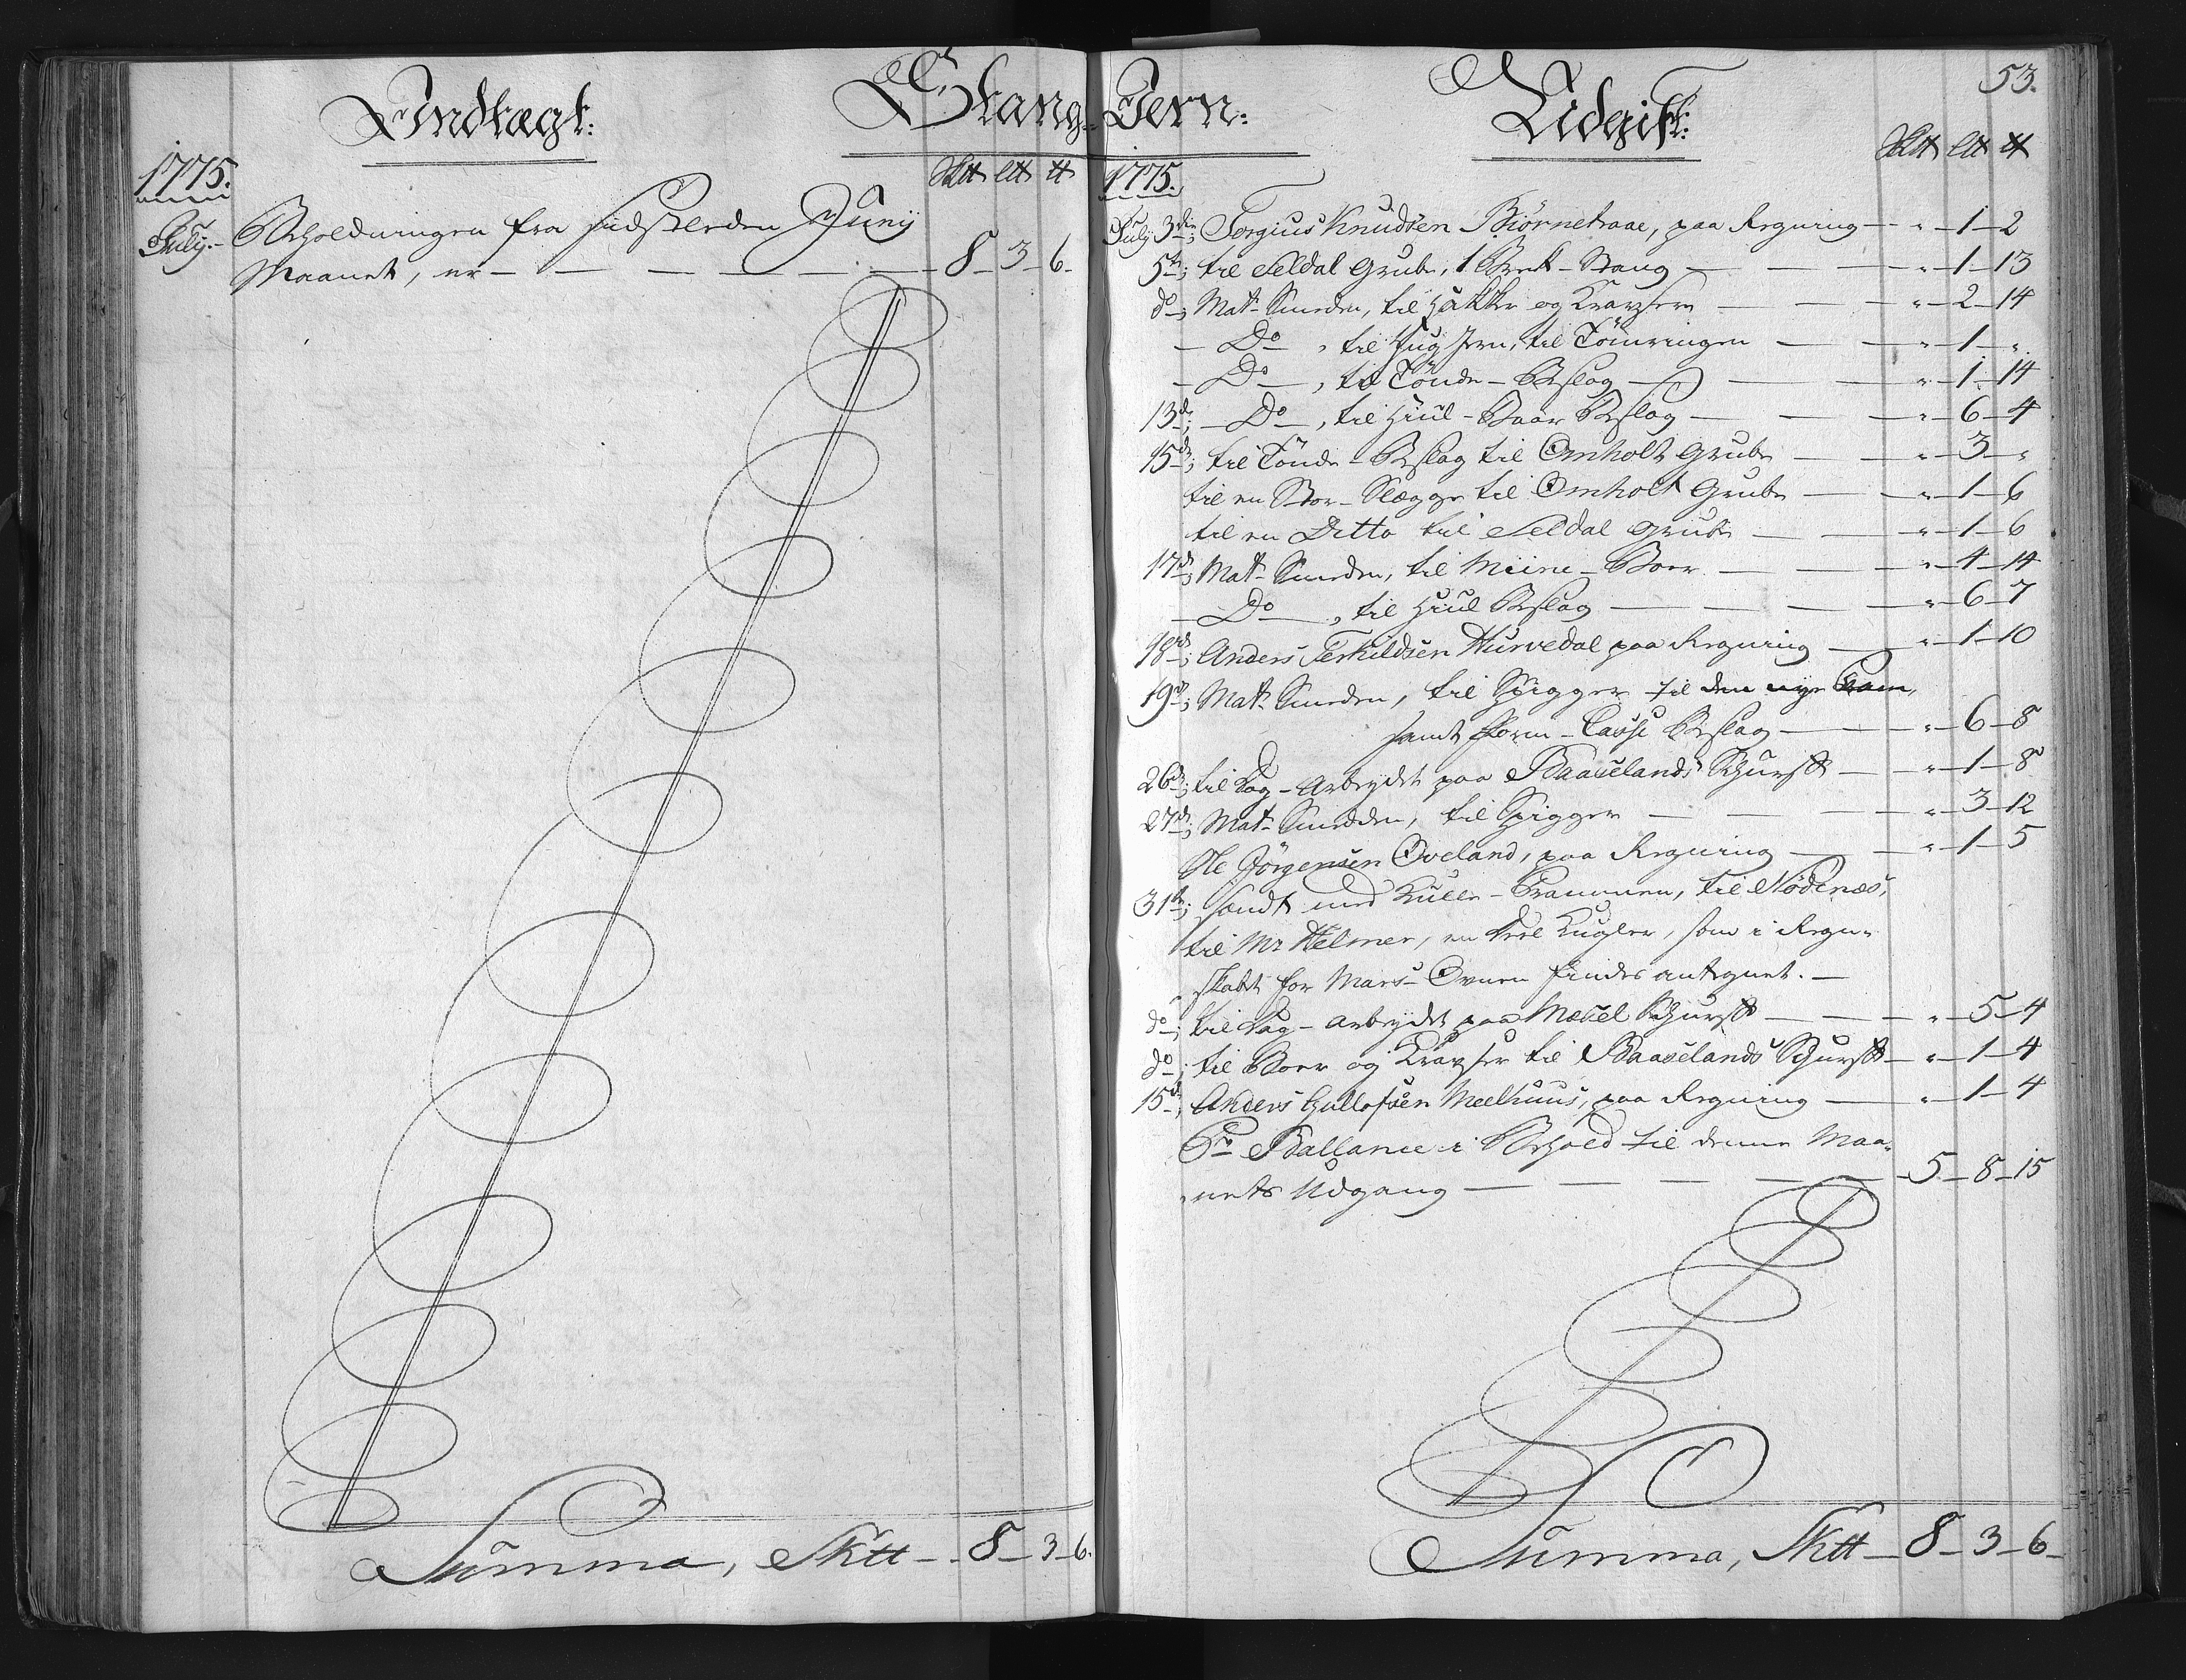 Indtægt:
Stang-Jern:
1775.
Sk℔ L℔ ℔
July- Beholdningen fra sidstleeden Junij
Maanet, er — — — — — — 8-3-6-
Summa, Sk℔ - 8-3-6.
Udgift:
53.
1775.
Sk℔ L℔ ℔
July 3die; Torgius Knudsen Biørnetraae, paa Regning - " -1-2
5te; til Seldal Grube, 1 Bræk-Stang — — " -1-13
do; Mat- Smeden, til Hakker og Kradsere — — " -2-14
- Do, til Jern, til Tömringen — " -1- "
- Do, til Tönde-Beslag — — " -1-14
13de; - Do, til Hiul-Baar Beslag — — " -6-4
15de; til Tönde-Beslag til Omholt Grube — " -3- "
til en Stor-Slægge til Omholt Grube — " -1-6
til en Ditto til Seldal Grube — — " -1-6
17de; Mat- Smeden, til Miine-Boer — — " -4-14
- Do, til Hiul Beslag — — " -6-7
18de; Anders Terkildsen Hurvedal paa Regning — " -1-10
19de; Mat- Smeden, til Spigger til den nye
samt Form-Casse Beslag — — " -6-8
26de; til Dag-Arbeydet paa Baaselands Skjurff — " -1-8
27de; Mat- Smedden, til Spigger — — " -3-12
Ole Jörgensen Oveland, paa Regning — " -1-5
31te; sendt med Kulle-Prammen, til Nödenæs,
til Mr Helmer, en deel Kugler, som i Regn-
skabet for Mars-Ovnen findes antegnet. —
do; til Dag-Arbeydet paa Mæsel Skjurff — — " -5-4
do; til Boer og Kradser til Baaselands Skjurff — " -1-4
15de; Anders Gullofsen Meelhuus, paa Regning — " -1-4
Pr Ballance i Behold til denne Maa-
nets Udgang — — — — — -5-8-15
Summa, Sk℔ - 8-3-6-